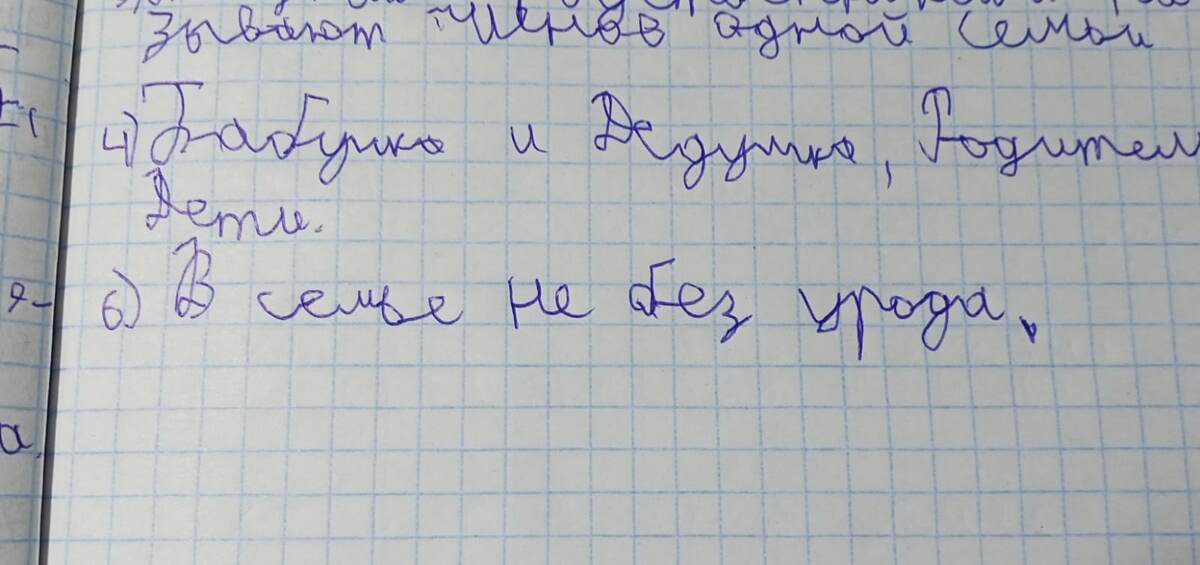 зывают членов одной семьи
4) Бабушка и Дедушка, Родител
Дети.
6) В семье не без урода.